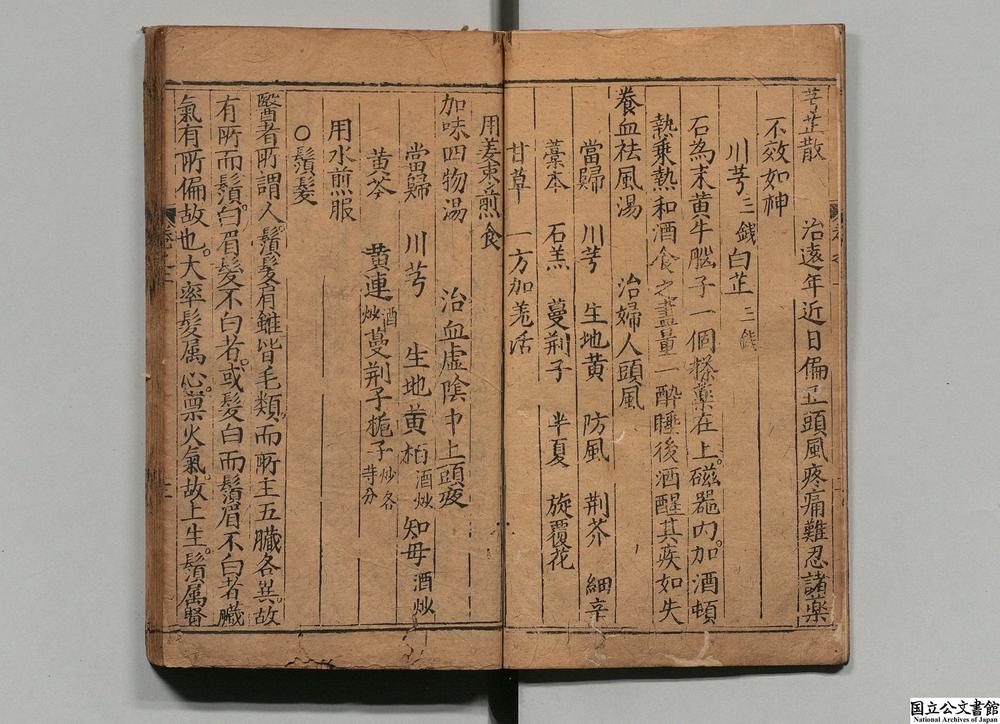 芎芷散 治遠年近日偏正頭風疼痛難忍諸藥
不效如神
川芎三銭白芷三銭
石為末黄牛腦子一個搽藥在上磁器内加酒頓
熟乗熱和酒食之盡量一醉睡後酒醒其疾如失
養血祛風湯 治婦人頭風
當歸 川芎 生地黄 防風 荆芥 細辛
藁本 石羔 蔓荆子 半夏 旋覆花
甘草 一方加羌活
用姜枣煎食
加味四物湯 治血虚陰中上頭疫
當歸 川芎 生地黄 栢酒炒 知母酒炒
黄芩 黄連酒炒 蔓荆子 梔子炒各等分
用水煎服
○鬚髮
醫者所謂人鬚髮眉雖皆毛類而所主五臓各異故
有所而鬚白眉髮不白者或髮白而鬚眉不白者臓
氣有所偏故也大率髮属心禀火氣故上生鬚属腎
国立公文書館
National Archives of Japan